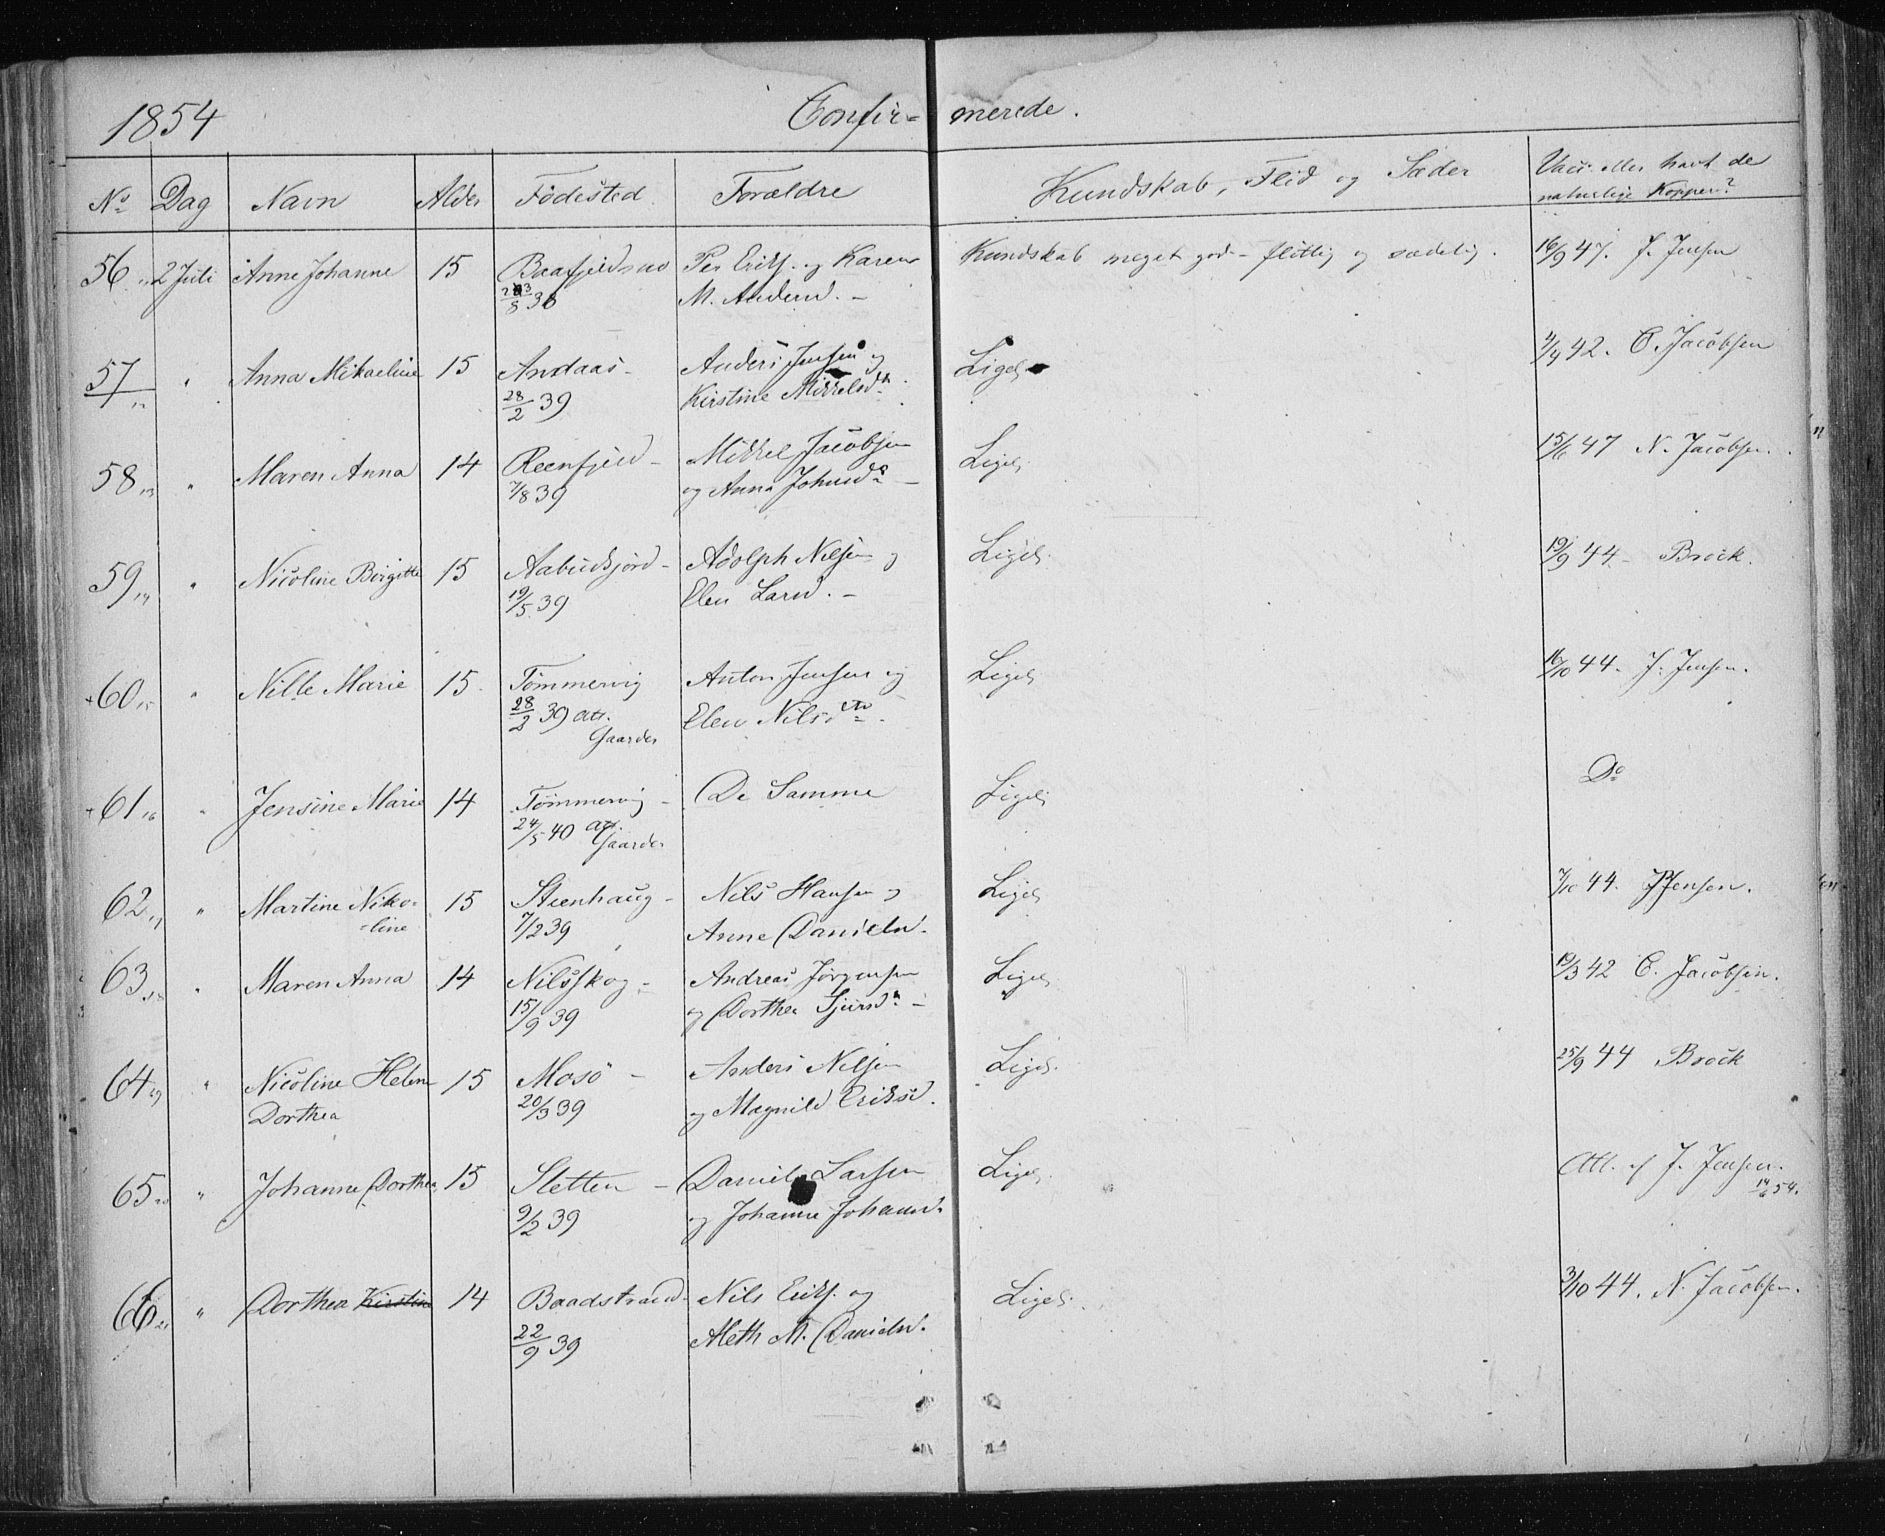 1854 Confir= merede.
No Dag Navn Alder Födested Forældre Kundskab, Flid og Sæder Vacc. eller havt de
naturlige Kopper?
56 11 2 Juli Anne Johanne 15 Per Eriks. og Karen Kundskab meget god - flittig og sædelig. 16/9 47. J. Jensen
M. Andersd. -
57 12 " Anna Mikaeline 15 Andaas - Anders Jensen og Ligel. 42. C. Jacobsen
28/2 39 Kirstine Mikkelsdtr.
58 13 " Maren Anna 14 Reenfjeld - Mikkel Jacobsen Ligel. 15/6 47 N. Jacobsen.
7/8 39 og Anna Johnsdr -
59 14 " Nicoline Birgitte 15 Adolph Nilsen og Ligel. 19/9 44 - Brock.
19/5 39 Elen Larsd. -
+60 15 " Nille Marie 15. Tömmervig Anton Jensen og Ligel. 16/10 44. J. Jensen.
28/2 39 att. Elen Nilsdtr.
Gaarder
+61 16 " Jensine Marie 14 Tömmervig - De Samme Ligel. Do
24/5 40 att.
Gaarder
62 17 " Martine Niko- 15 Steenhaug - Nils Hansen og Ligel. 7/10 44. J Jensen.
-line 7/2 39 Anne Danielsd.
63 18 " Maren Anna 14 Nilsskog - Andreas Jörgensen Ligel. 19/3 42 C. Jacobsen.
15/9 39 og Dorthea Sjursdr -
64 19 " Nicoline Helene 15 Mosö - Anders Nilsen Ligel. 25/9 44 Brock
Dorthea 20/3 39 og Magnild Eriksd.
65 20 " Johanne Dorthea 15 Sletten - Daniel Larsen Ligel. Att. af J. Jensen.
14/6 54.
9/2 39 og Johanna Johansd.
66 21 " Dorthea Kirstine 14 Baadstrand. Nils Eriks. og Ligel. 3/10 44. N. Jacobsen.
22/9 39 Aleth M. Danielsd.